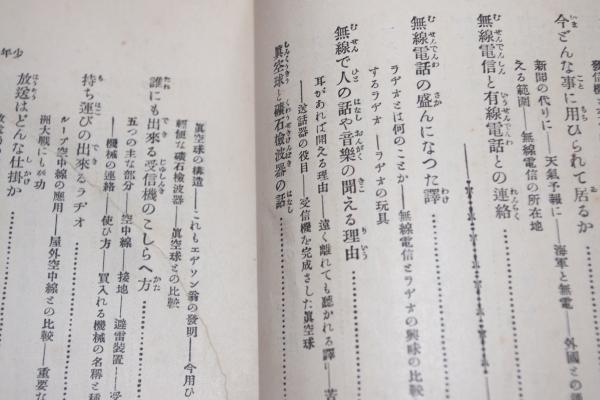 今どんな事に用ひられて居るか
新聞の代りに――天氣予報に――海軍と無電――外國との
える範圍――無線電信の所在地
無線電信と有線電話との連絡
無線電話の盛んになつた譯
ラヂオとは何のことか――無線電信とラヂオの興味の比較
するラヂオ――ラヂオの玩具
無線で人の話や音樂の聞える理由
耳があれば聞える理由――遠く離れても聽かれる譯
――送話器の役目――受信機を完成さした眞空球
眞空球と礦石檢波器の話
眞空球の構造――これもエヂソン翁の發明――今用ひ
輕便な礦石檢波器――眞空球との比較
誰にも出來る受信機のこしらへ方
五つの主な部分――空中線――接地――避雷裝置――受
――機械の連絡――使ひ方――買入れる機械の名稱と種
持ち運びの出來るラヂオ
ループ空中線の應用――屋外空中線との比較――重要な
洲大戰に功
放送はどんな仕掛か
少年